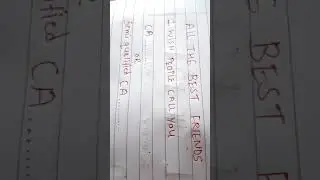 ALL THE BEST FRIENDS
I WISH PEOPLE CALL YOU
CA ..........
OR
Semi qualified CA ..........